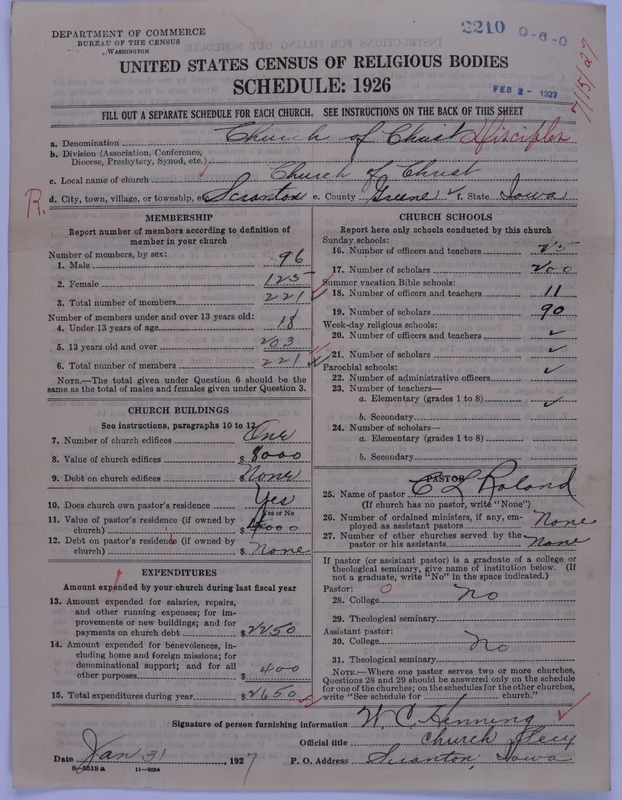 DEPARTMENT OF COMMERCE
BUREAU OF THE CENSUS
WASHINGTON
2210 0-6-0
UNITED STATES CENSUS OF RELIGIOUS BODIES
SCHEDULE: 1926
FEB 2 - 1927
7/15/27
FILL OUT A SEPARATE SCHEDULE FOR EACH CHURCH. SEE INSTRUCTIONS ON THE BACK OF THIS SHEET
a. Denomination Church of Christ Disciples
b. Division (Association, Conference, Diocese, Presbytery, Synod, etc.)
c. Local name of church Church of Christ
R.
d. City, town, village, or township, Scranton e. County Greene f. State Iowa
MEMBERSHIP
Report number of members according to definition of
member in your church
Number of members, by sex:
1. Male 96
2. Female 125
3. Total number of members 221
Number of members under and over 13 years old:
4. Under 13 years of age 18
5. 13 years old and over 203
6. Total number of members 221
NOTE.—The total given under Question 6 should be
same as the total of males and females given under Question 3.
CHURCH BUILDINGS
See instructions, paragraphs 10 to 12
7. Number of church edifices One
8. Value of church edifices $ 8000
9. Debt on church edifices $ None
10. Does church own pastor's residence Yes
Yes or No
11. Value of pastor's residence (if owned by
church) $ 4000
12. Debt on pastor's residence (if owned by
church) $ None
EXPENDITURES
Amount expended by your church during last fiscal year
13. Amount expended for salaries, repairs,
and other running expenses; for im-
provements or new buildings; and for
payments on church debt $ 2250
14. Amount expended for benevolences, in-
cluding home and foreign missions; for
denominational support; and for all
other purposes $ 400
15. Total expenditures during year $ 2650
CHURCH SCHOOLS
Report here only schools conducted by this church
Sunday schools:
16. Number of officers and teachers 25
17. Number of scholars 200
Summer vacation Bible schools:
18. Number of officers and teachers 11
19. Number of scholars 90
Week-day religious schools:
20. Number of officers and teachers ✓
21. Number of scholars ✓
Parochial schools: ✓
22. Number of administrative officers
23. Number of teachers—
a. Elementary (grades 1 to 8) ✓
b. Secondary
24. Number of scholars—
a. Elementary (grades 1 to 8)
b. Secondary
PASTOR
25. Name of pastor C L Roland
(If church has no pastor, write "None")
26. Number of ordained ministers, if any, em-
ployed as assistant pastors None
27. Number of other churches served by the
pastor or his assistants None
If pastor (or assistant pastor) is a graduate of a college or
theological seminary, give name of institution below. (If
not a graduate, write "No" in the space indicated.)
Pastor:
28. College No
29. Theological seminary
Assistant pastor:
30. College No
31. Theological seminary
NOTE.—Where one pastor serves two or more churches,
Questions 28 and 29 should be answered only on the schedule
for one of the churches; on the schedules for the other churches,
write "See schedule for church."
Signature of person furnishing information W. C. Henning
Official title Church Secy
Date Jan 31, 1927 P. O. Address Scranton, Iowa
8-5518 a 11-9064